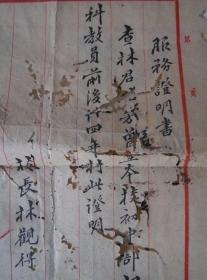 服務證明書
查林君　　曾在本校初中部
科教員前後計四年特此證明
校長林觀得